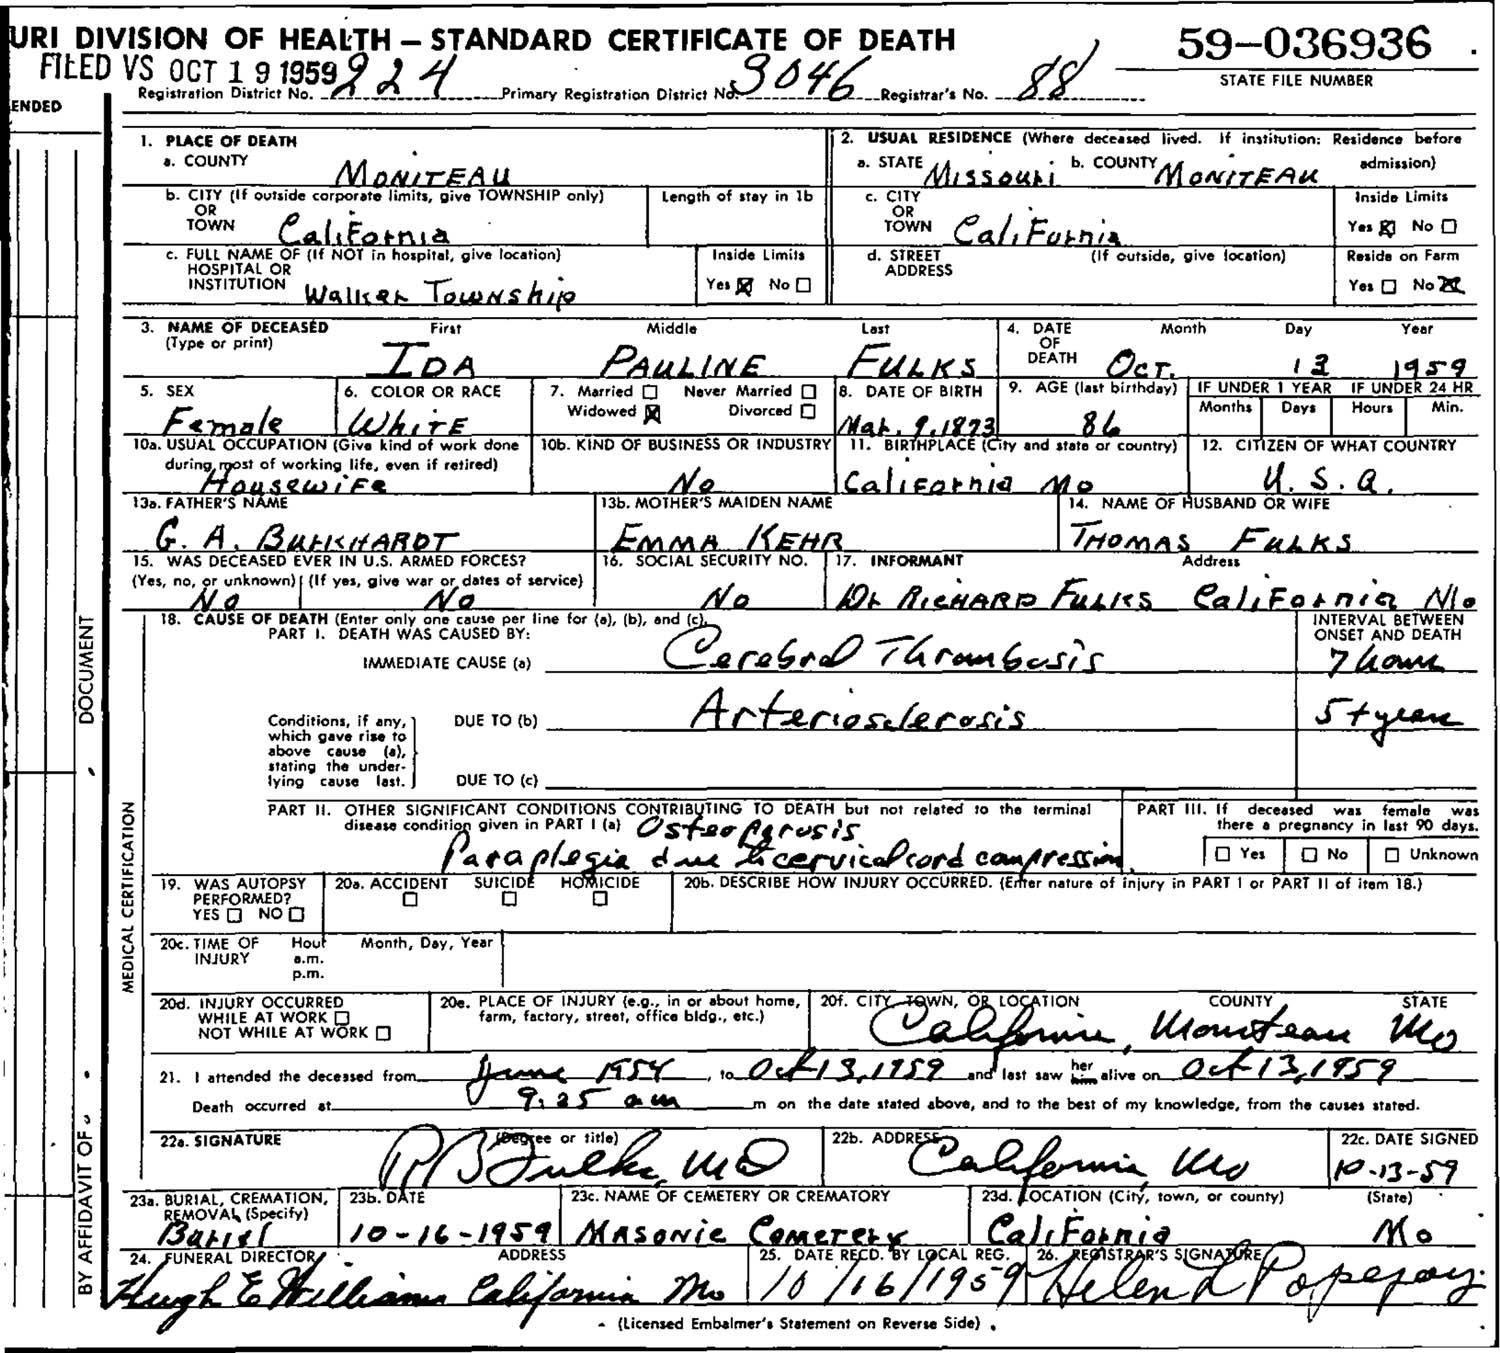 URI DIVISION OF HEALTH — STANDARD CERTIFICATE OF DEATH
59-036936
FILED VS OCT 19 1959
STATE FILE NUMBER
Registration District No. 224 Primary Registration District No. 3046 Registrar's No. 88
ENDED
1. PLACE OF DEATH
a. COUNTY
MONITEAU
2. USUAL RESIDENCE (Where deceased lived. If institution: Residence before admission)
a. STATE Missouri b. COUNTY MONITEAU
b. CITY (If outside corporate limits, give TOWNSHIP only)
OR
TOWN California
Length of stay in 1b
c. CITY
OR
TOWN California
Inside Limits
Yes ☒ No ☐
c. FULL NAME OF (If NOT in hospital, give location)
HOSPITAL OR
INSTITUTION Walker Township
Inside Limits
Yes ☒ No ☐
d. STREET
ADDRESS
(If outside, give location)
Reside on Farm
Yes ☐ No ☒
3. NAME OF DECEASED
(Type or print)
First Middle Last
IDA PAULINE FULKS
4. DATE
OF
DEATH
Month Day Year
Oct. 13 1959
5. SEX
Female
6. COLOR OR RACE
White
7. Married ☐ Never Married ☐
Widowed ☒ Divorced ☐
8. DATE OF BIRTH
Mar. 9, 1873
9. AGE (last birthday)
86
IF UNDER 1 YEAR
Months Days
IF UNDER 24 HR
Hours Min.
10a. USUAL OCCUPATION (Give kind of work done
during most of working life, even if retired)
Housewife
10b. KIND OF BUSINESS OR INDUSTRY
No
11. BIRTHPLACE (City and state or country)
California Mo
12. CITIZEN OF WHAT COUNTRY
U. S. A.
13a. FATHER'S NAME
G. A. BURKHARDT
13b. MOTHER'S MAIDEN NAME
EMMA KEHR
14. NAME OF HUSBAND OR WIFE
THOMAS FULKS
15. WAS DECEASED EVER IN U.S. ARMED FORCES?
(Yes, no, or unknown) (If yes, give war or dates of service)
No No
16. SOCIAL SECURITY NO.
No
17. INFORMANT Address
Dr RICHARD FULKS California Mo
18. CAUSE OF DEATH (Enter only one cause per line for (a), (b), and (c).
PART I. DEATH WAS CAUSED BY:
IMMEDIATE CAUSE (a) Cerebral Thrombosis
INTERVAL BETWEEN
ONSET AND DEATH
7 hours
Conditions, if any,
which gave rise to
above cause (a),
stating the under-
lying cause last.
DUE TO (b) Arteriosclerosis
5+ years
DUE TO (c)
PART II. OTHER SIGNIFICANT CONDITIONS CONTRIBUTING TO DEATH but not related to the terminal
disease condition given in PART I (a) Osteoporosis
Paraplegia due to cervical cord compression
PART III. If deceased was female was
there a pregnancy in last 90 days.
☐ Yes ☐ No ☐ Unknown
19. WAS AUTOPSY
PERFORMED?
YES ☐ NO ☐
20a. ACCIDENT SUICIDE HOMICIDE
☐ ☐ ☐
20b. DESCRIBE HOW INJURY OCCURRED. (Enter nature of injury in PART I or PART II of item 18.)
20c. TIME OF
INJURY
Hour
a.m.
p.m.
Month, Day, Year
20d. INJURY OCCURRED
WHILE AT WORK ☐
NOT WHILE AT WORK ☐
20e. PLACE OF INJURY (e.g., in or about home,
farm, factory, street, office bldg., etc.)
20f. CITY, TOWN, OR LOCATION COUNTY STATE
California, Moniteau Mo
21. I attended the deceased from June 1954, to Oct 13, 1959 and last saw her him alive on Oct 13, 1959
Death occurred at 9:25 am m on the date stated above, and to the best of my knowledge, from the causes stated.
22a. SIGNATURE (Degree or title)
R B Fulks, MD
22b. ADDRESS
California, Mo
22c. DATE SIGNED
10-13-59
23a. BURIAL, CREMATION,
REMOVAL (Specify)
Burial
23b. DATE
10-16-1959
23c. NAME OF CEMETERY OR CREMATORY
MASONIC CEMETERY
23d. LOCATION (City, town, or county) (State)
California Mo
24. FUNERAL DIRECTOR ADDRESS
Hugh E Williams California Mo
25. DATE RECD. BY LOCAL REG.
10/16/1959
26. REGISTRAR'S SIGNATURE
Helen L Popejoy
(Licensed Embalmer's Statement on Reverse Side)
DOCUMENT
BY AFFIDAVIT OF
MEDICAL CERTIFICATION